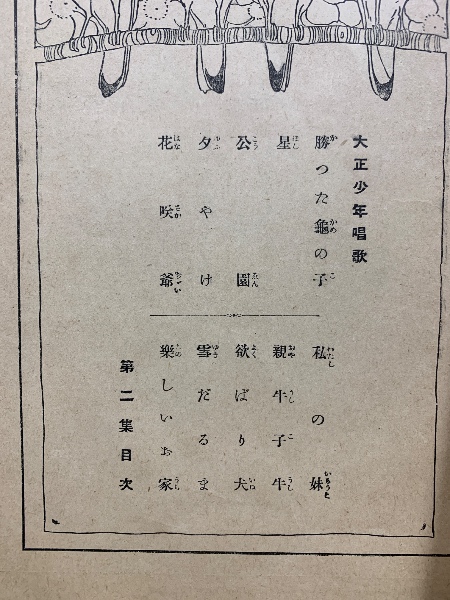 大正少年唱歌
勝つた龜の子
星
公園
夕やけ
花咲爺
私の妹
親牛子牛
欲ばり犬
雪だるま
樂しいお家
第二集目次